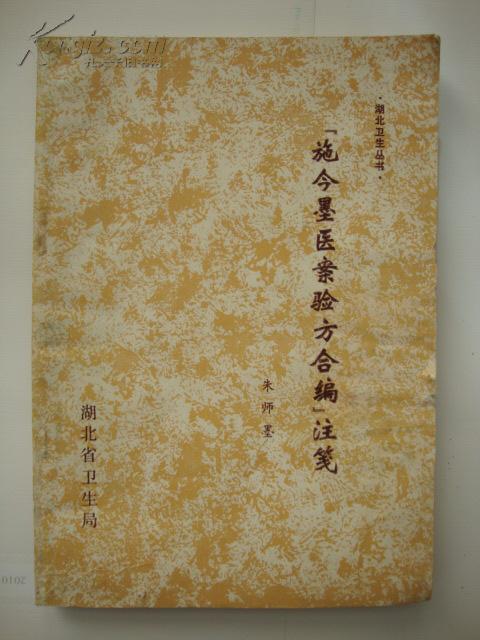 Kongfz.com
·湖北卫生丛书·
「施今墨医案验方合编」注笺
朱师墨
湖北省卫生局
2010